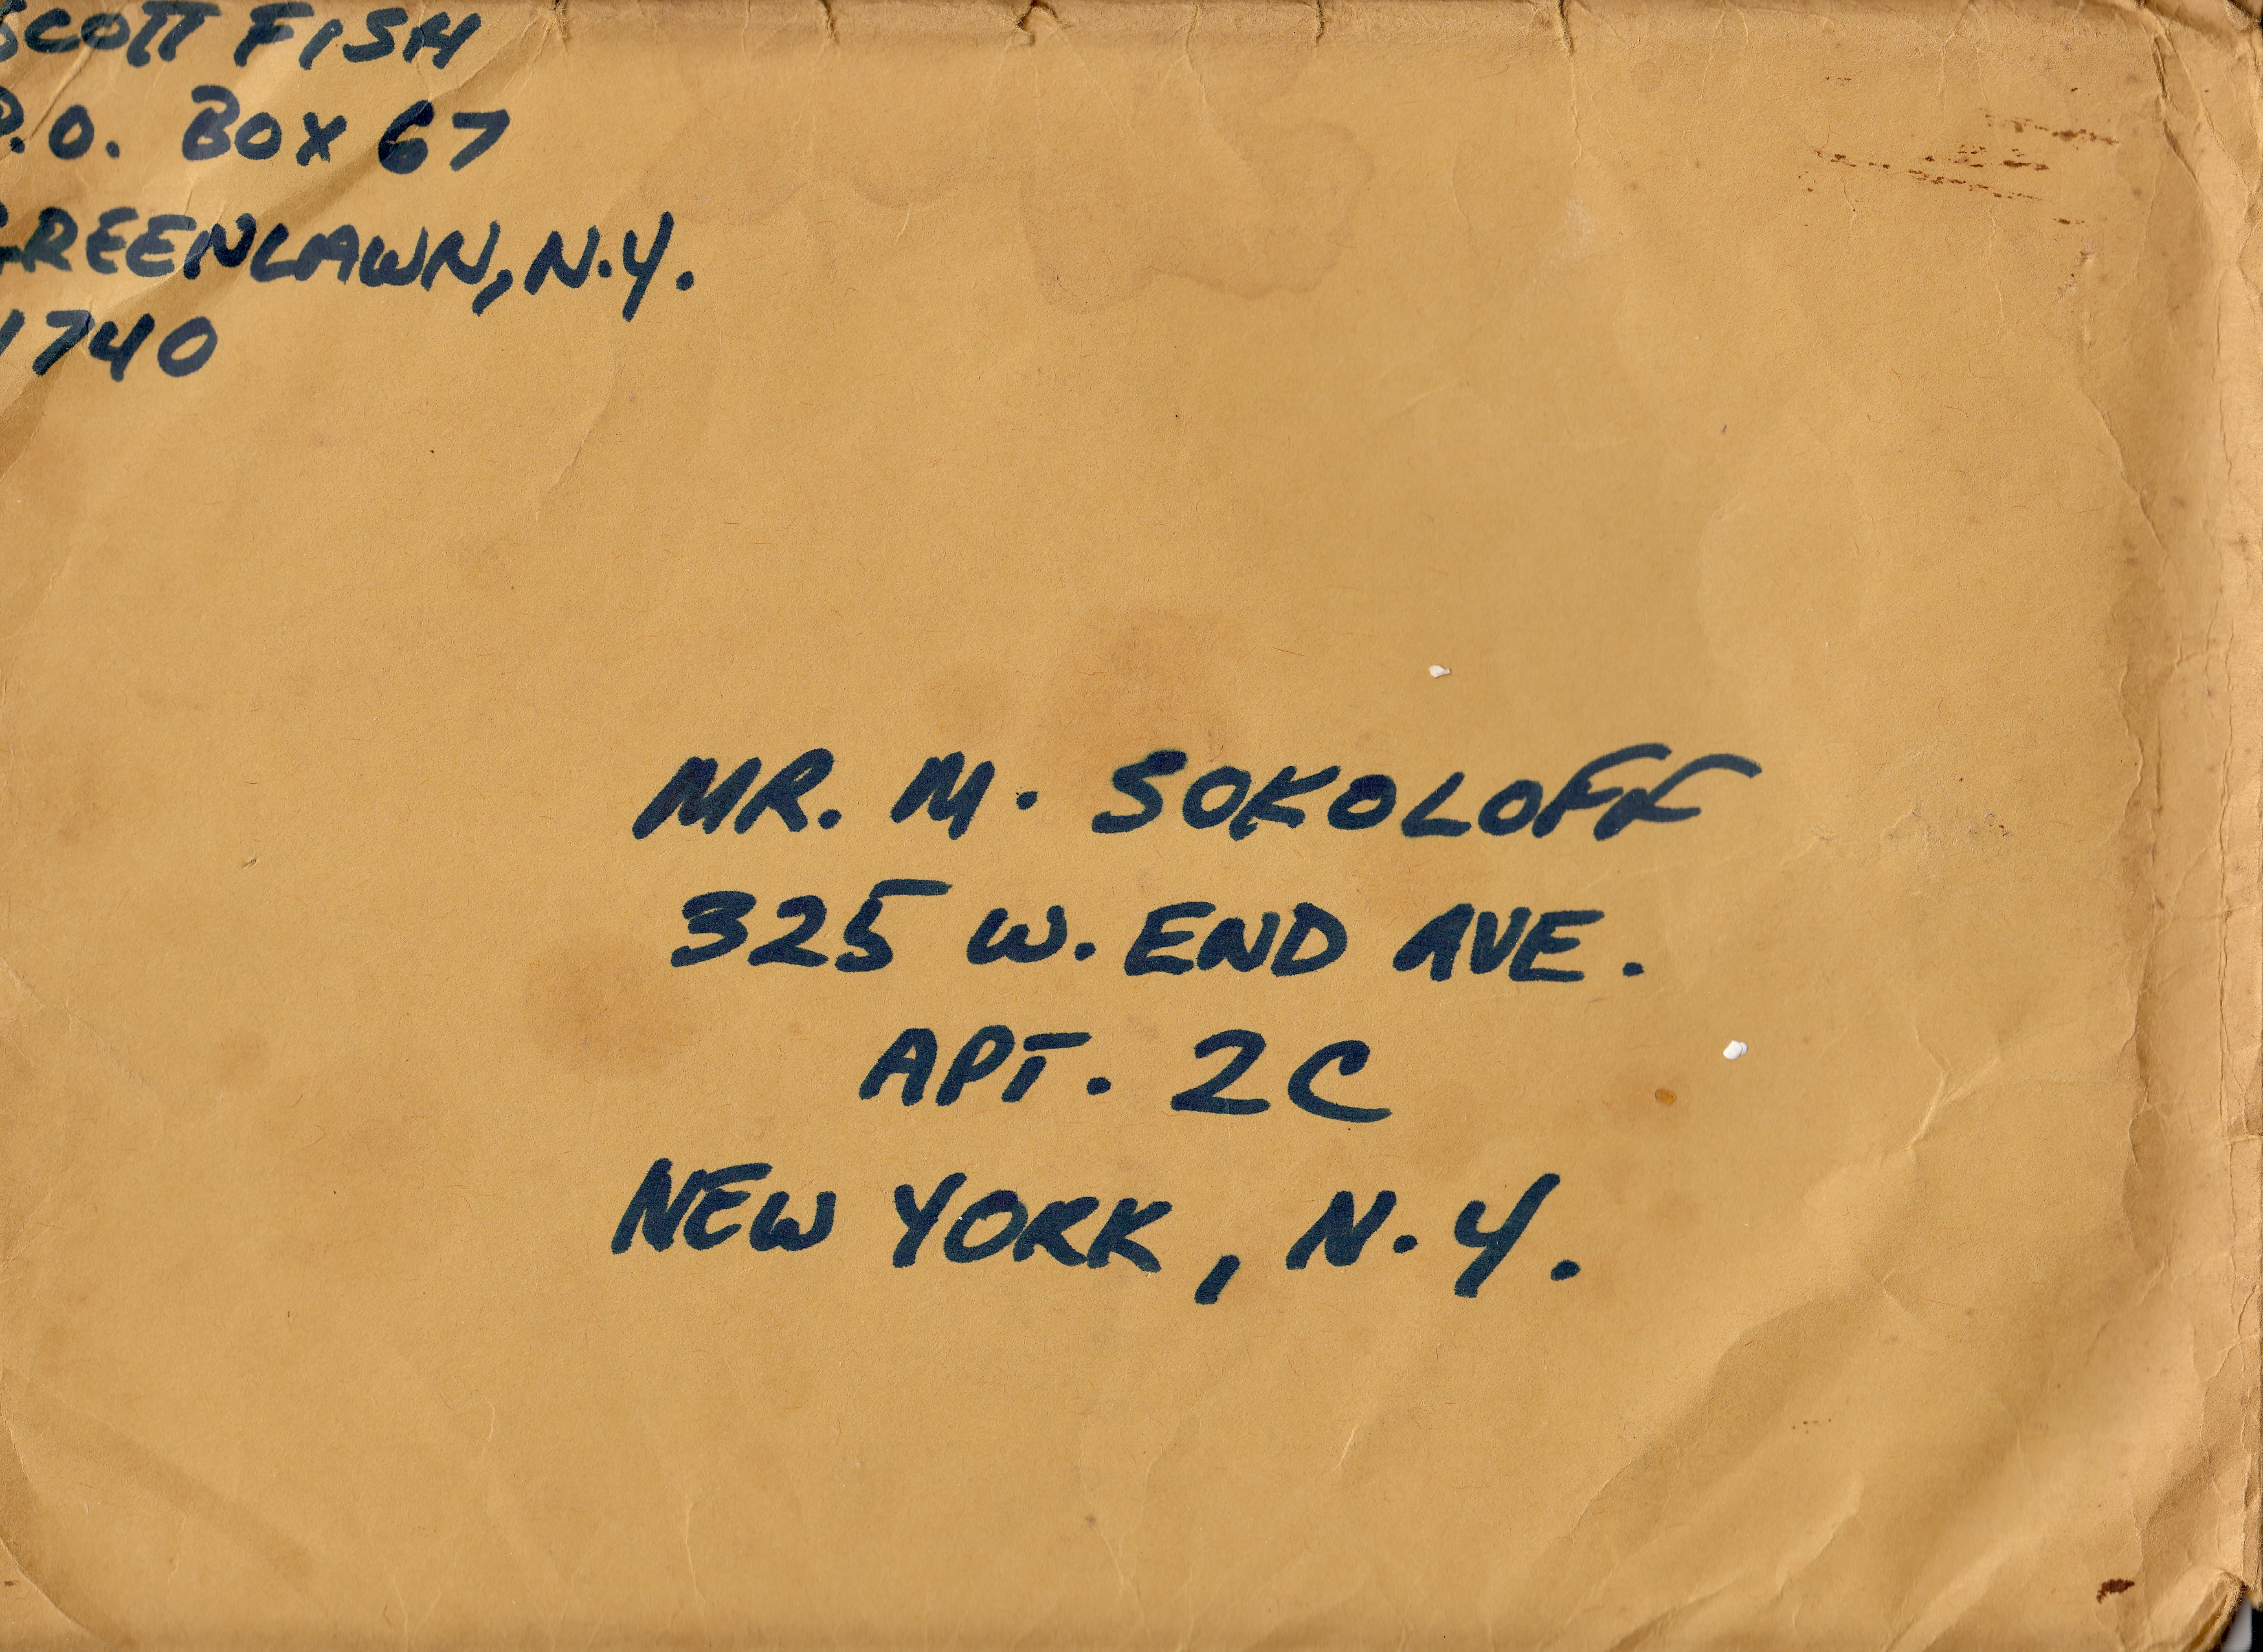 SCOTT FISH
P.O. BOX 67
GREENLAWN, N.Y.
11740
MR. M. SOKOLOFF
325 W. END AVE.
APT. 2C
NEW YORK, N.Y.